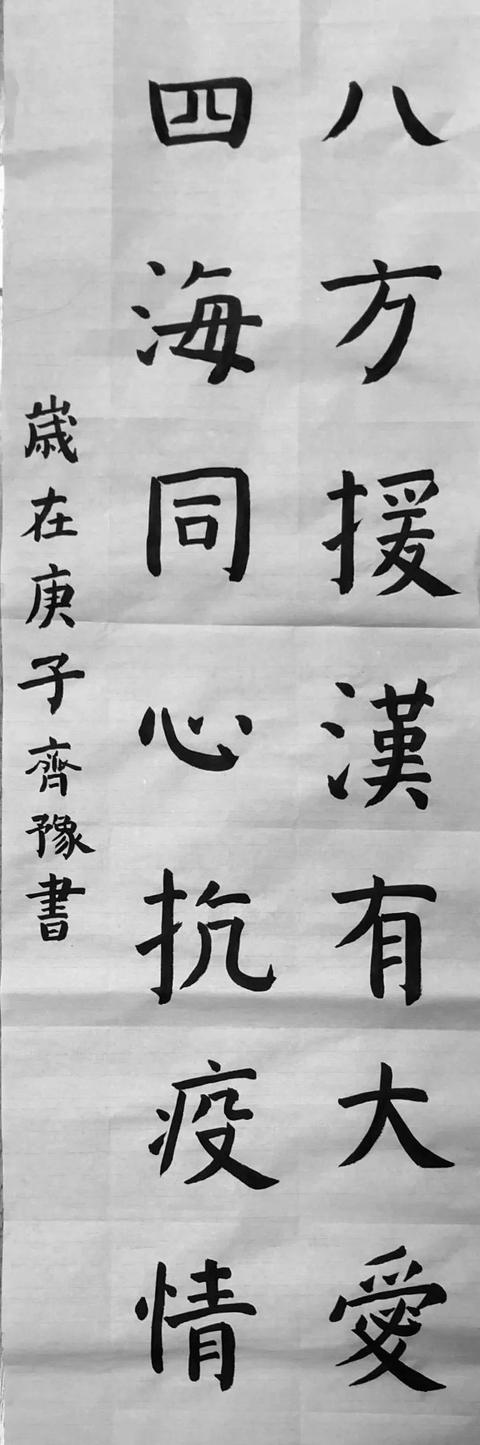 八方援漢有大愛
四海同心抗疫情
歲在庚子齊豫書